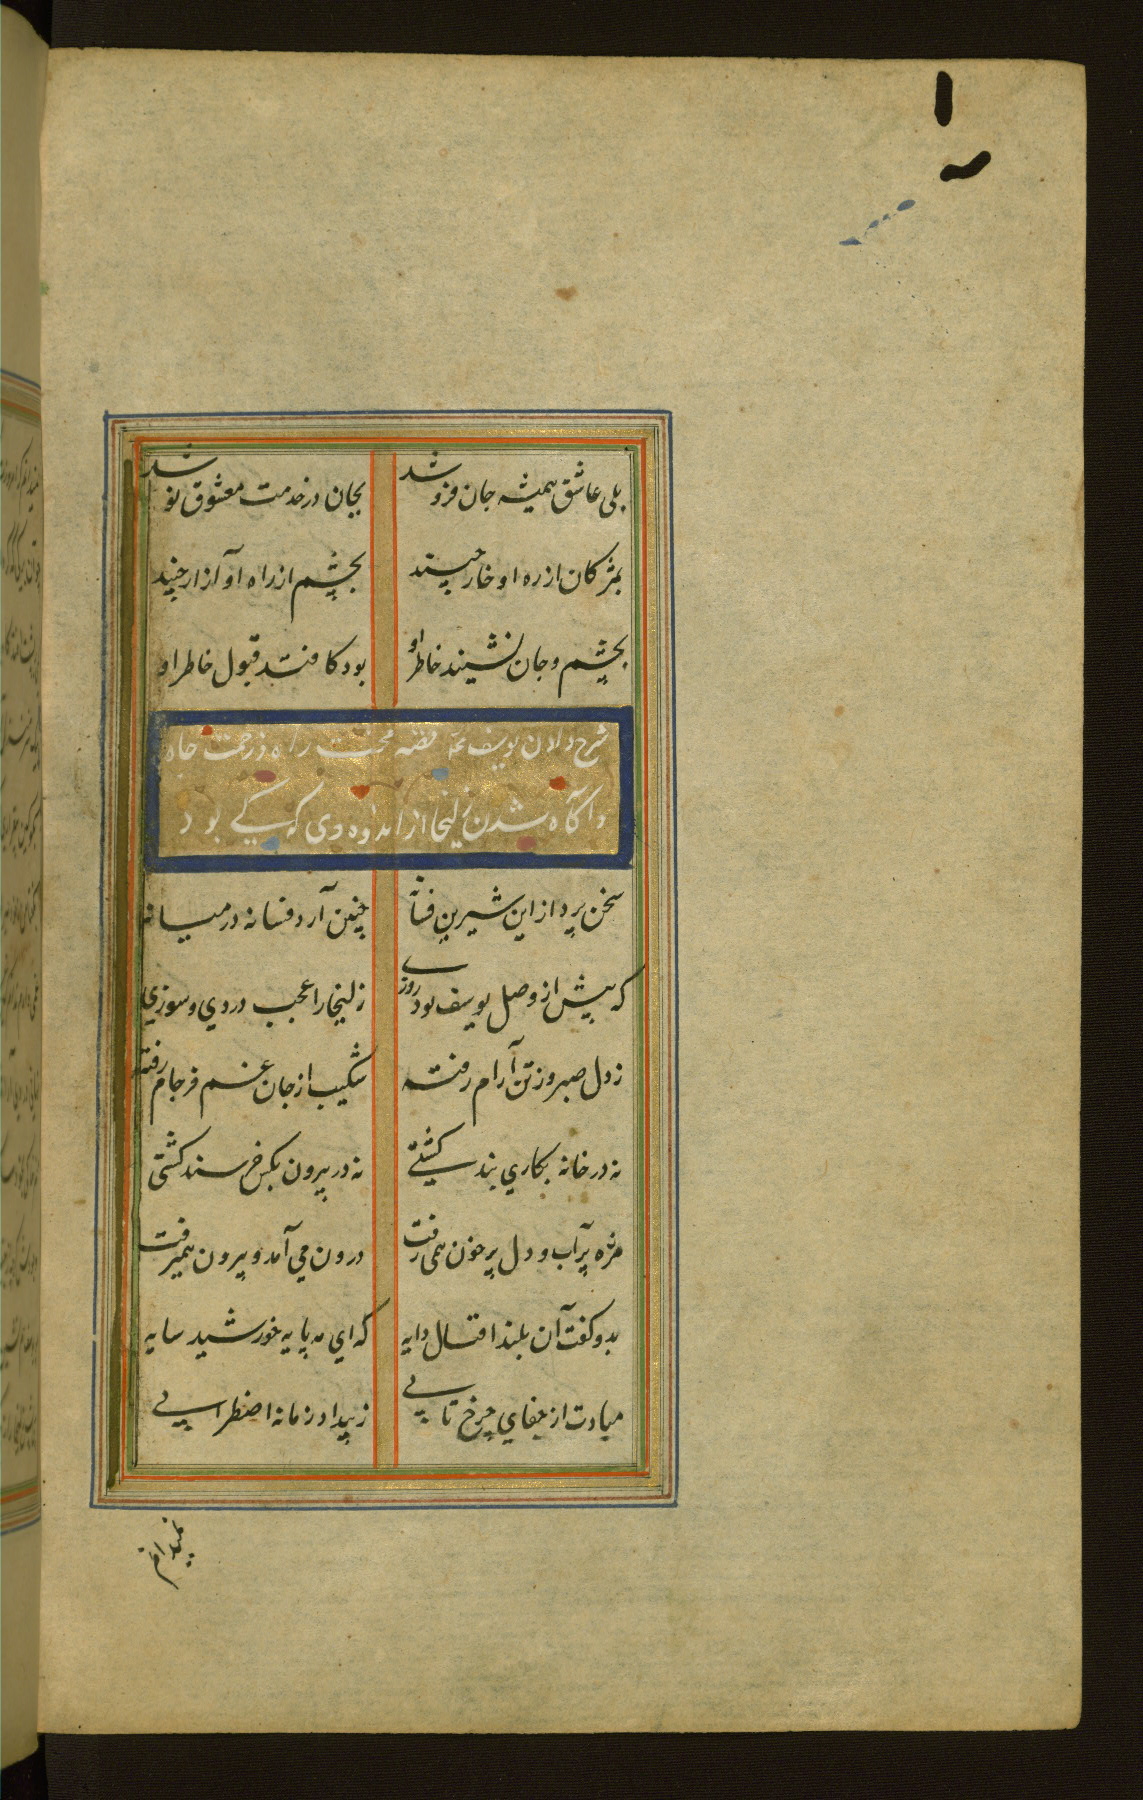 بلی عاشق همیشه جان فروشد بجان در خدمت معشوق کوشد
بمژکان از ره او خار چیند بچشم از راه او آزار چیند
بچشم و جان نشیند خاطر او بود کافتد قبول خاطر او
شرح دادن یوسف قصه محنت راه و زحمت چاه
و آکاه شدن زلیخا از اندوه وی که کی بود
سخن پرداز این شیرین فسانه چنین آرد فسانه در میانه
که پیش از وصل یوسف بود روزی زلیخا را عجب دردی و سوزی
ز دل صبر و ز تن آرام رفته شکیب از جان غم فرجام رفته
نه در خانه بکاری بند کشتی نه در بیرون بکس خرسند کشتی
مژه پر آب و دل پر خون همی رفت درون می آمد و بیرون همیرفت
بدو کفت آن بلند اقبال دایه که ای مه پایه خورشید سایه
مبادت از جفای چرخ تابی ز بیداد زمانه اضطرابی
نمیدانم